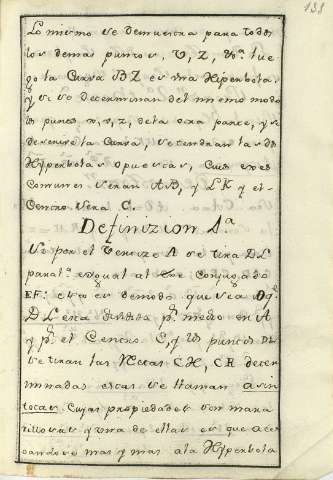 138
Lo mismo se demuestra para todos
los demas puntos, V, Z, &a. lue
go la Curva BZ es una Hiperbola.
y si se determinan del mismo modo
los puntos n, v, z, dela otra parte, y s.
descrive la Curva, se tendran las dos
Hyperbolas opuestas, Cuios exes
Comunes seran AB, y LK y el
Centro sera C.
Definizion 4.a
Si por el Vertize A se tira DL
paral.a e igual al exe Conjugado
EF: esto es demodo que sea
DL esta dividida p.r medio en A
y p.r el Centro C, y los puntos DL
se tiran las Rectas CH, CR deter
minadas estas se llaman asin
totas Cuyas propiedades son mara
villosas y una de ellas es que acer
candose mas y mas ala Hyperbola